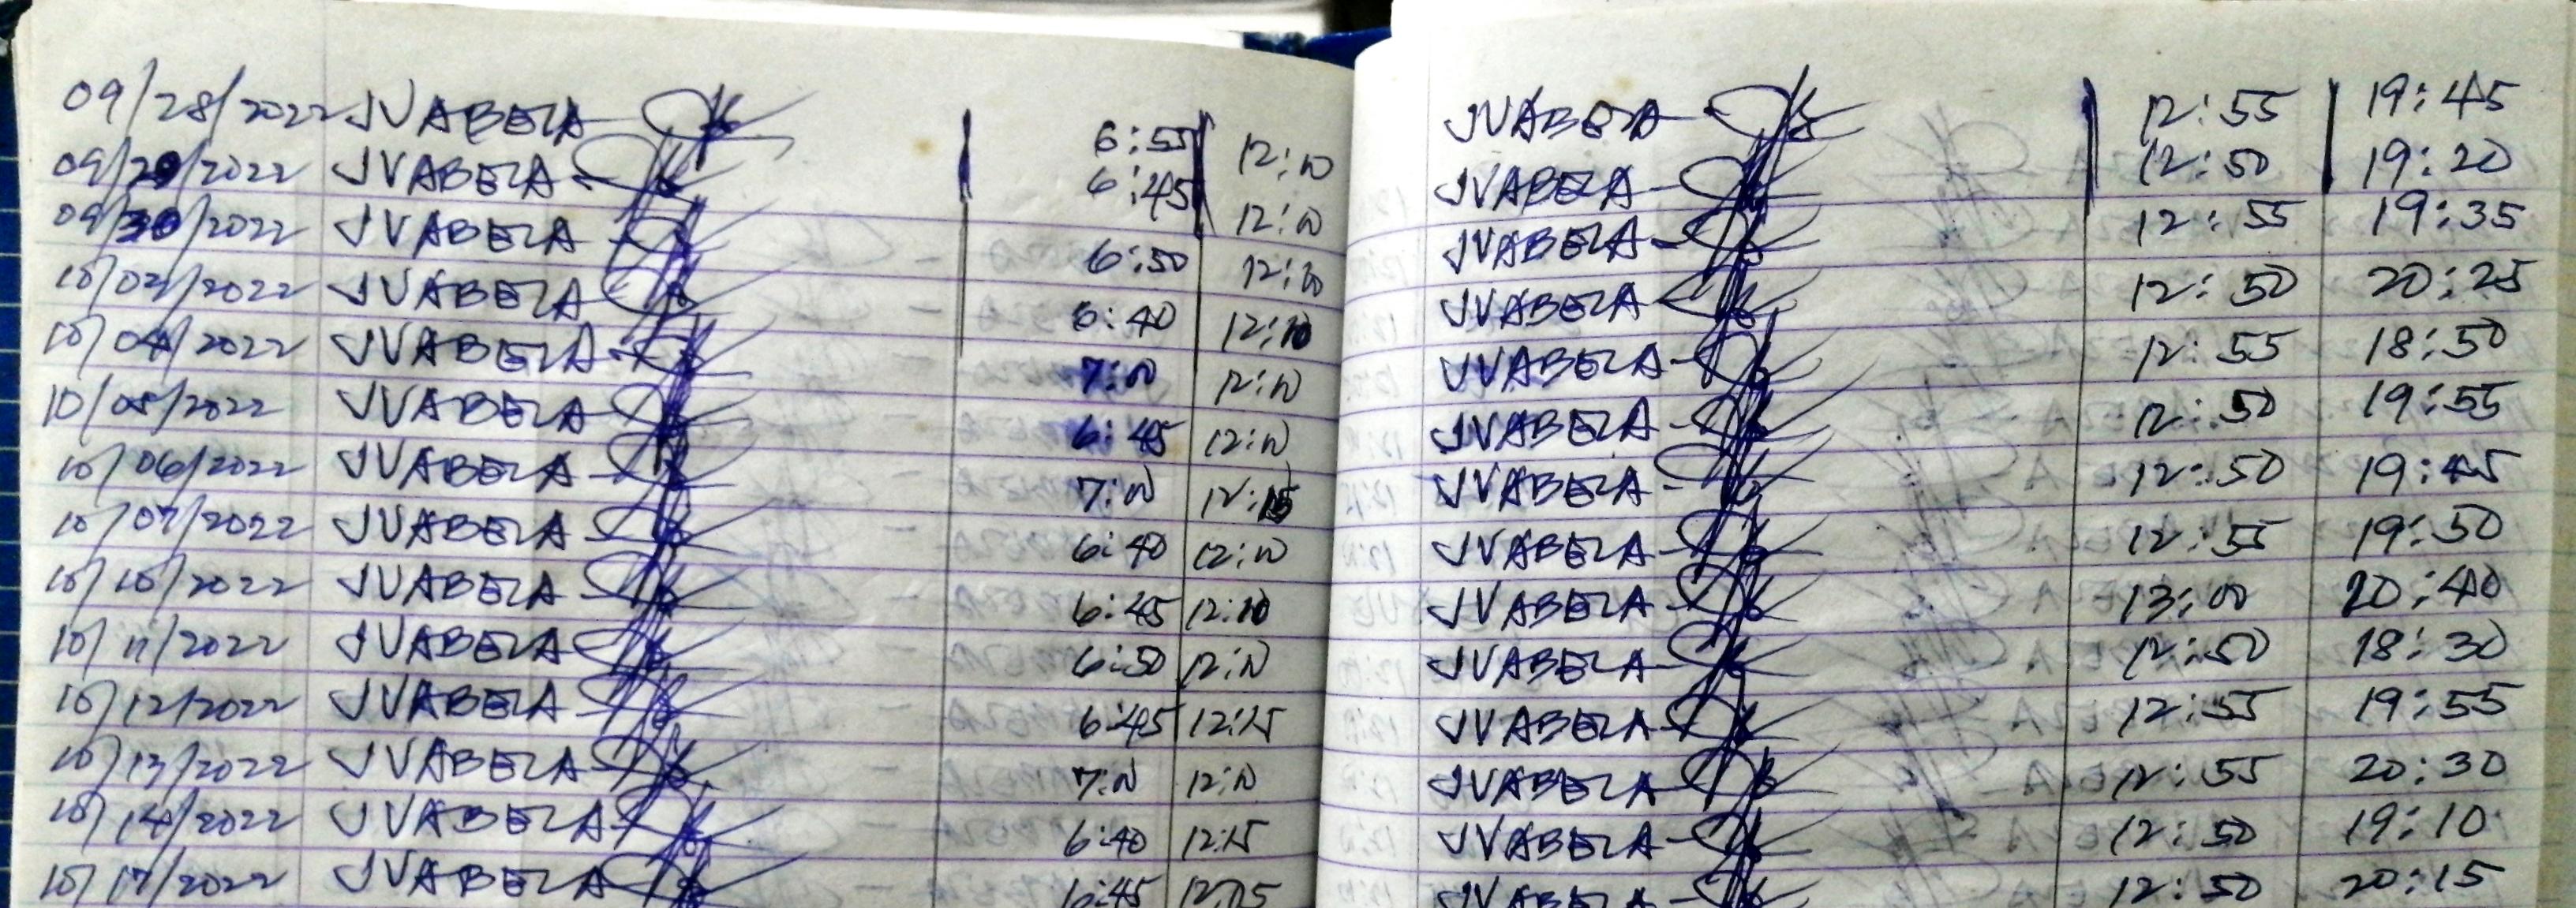 09/28/2022 JVABELA 6:55 12:00
09/29/2022 JVABELA 6:45 12:00
09/30/2022 JVABELA 6:50
10/03/2022 JVABELA 6:40 12:10
10/04/2022 JVABELA 7:00 12:00
10/05/2022 JVABELA 6:45 12:00
10/06/2022 JVABELA 7:00 12:15
10/07/2022 JVABELA 6:40 12:00
10/10/2022 JVABELA 6:45 12:10
10/11/2022 JVABELA 6:50 12:00
10/12/2022 JVABELA 6:45 12:15
10/13/2022 JVABELA 7:00 12:00
10/14/2022 JVABELA 6:40 12:15
10/17/2022 JVABELA 6:45
JVABELA 12:55 19:45
JVABELA 12:50 19:20
JVABELA 12:55 19:35
JVABELA 12:50 20:25
JVABELA 12:55 18:50
JVABELA 12:50 19:55
JVABELA 12:50 19:45
JVABELA 12:55 19:50
JVABELA 13:00 20:40
JVABELA 12:50 18:30
JVABELA 12:55 19:55
JVABELA 12:55 20:30
JVABELA 12:50 19:10
JVABELA 12:50 20:15